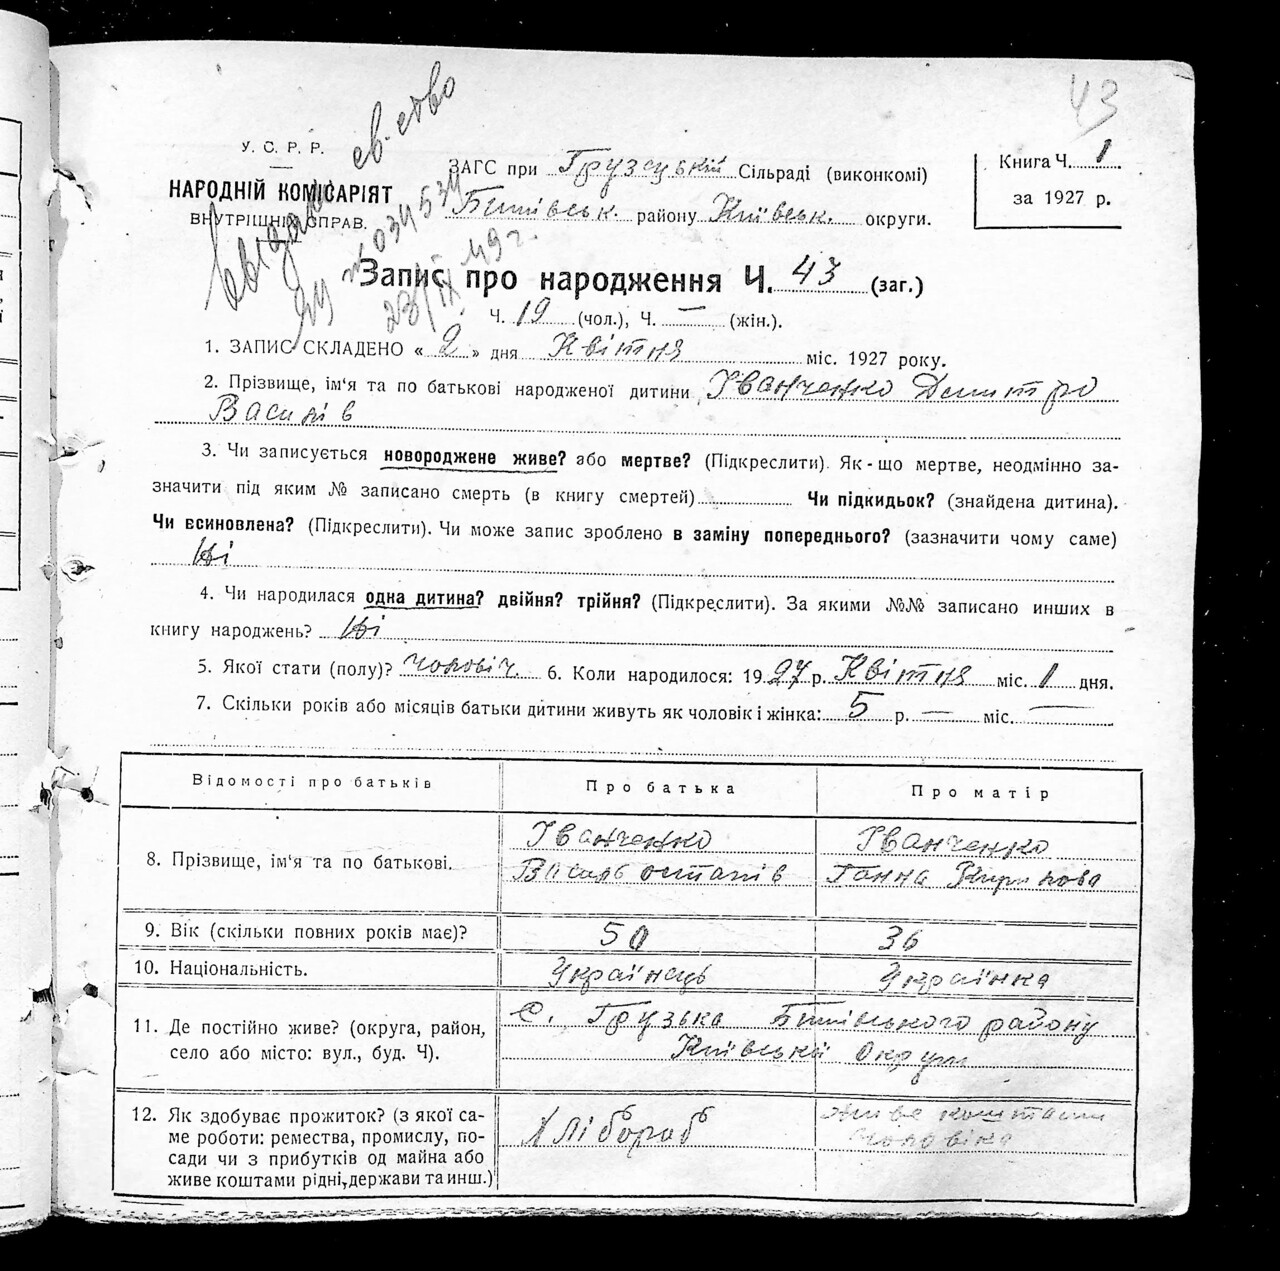 43
У. С. Р. Р.
НАРОДНІЙ КОМІСАРІЯТ
ВНУТРІШНІХ СПРАВ.
ЗАГС при Грузській Сільраді (виконкомі)
Бишівськ. району Київськ. округи.
Книга Ч. 1
за 1927 р.
св-ство
№ 034534
23/IX 49 г.
Запис про народження Ч. 43 (заг.)
Ч. 19 (чол.), Ч. — (жін.).
1. ЗАПИС СКЛАДЕНО « 2 » дня Квітня міс. 1927 року.
2. Прізвище, ім'я та по батькові народженої дитини Іванченко Дмитро
Василів
3. Чи записується новороджене живе? або мертве? (Підкреслити). Як-що мертве, неодмінно за-
значити під яким № записано смерть (в книгу смертей) Чи підкидьок? (знайдена дитина).
Чи всиновлена? (Підкреслити). Чи може запис зроблено в заміну попереднього? (зазначити чому саме)
Ні
4. Чи народилася одна дитина? двійня? трійня? (Підкреслити). За якими №№ записано инших в
книгу народжень? Ні
5. Якої стати (полу)? чоловіч. 6. Коли народилося: 1927 р. Квітня міс. 1 дня.
7. Скільки років або місяців батьки дитини живуть як чоловік і жінка: 5 р. — міс. —
Відомості про батьків Про батька Про матір
8. Прізвище, ім'я та по батькові. Іванченко Василь Остапів Іванченко Ганна
9. Вік (скільки повних років має)? 50 36
10. Національність. Українець Українка
11. Де постійно живе? (округа, район,
село або місто: вул., буд. Ч).
С. Грузька Бишівського району
Київської Округи
12. Як здобуває прожиток? (з якої са-
ме роботи: ремества, промислу, по-
сади чи з прибутків од майна або
живе коштами рідні, держави та инш.)
Хлібороб
живе коштами
чоловіка